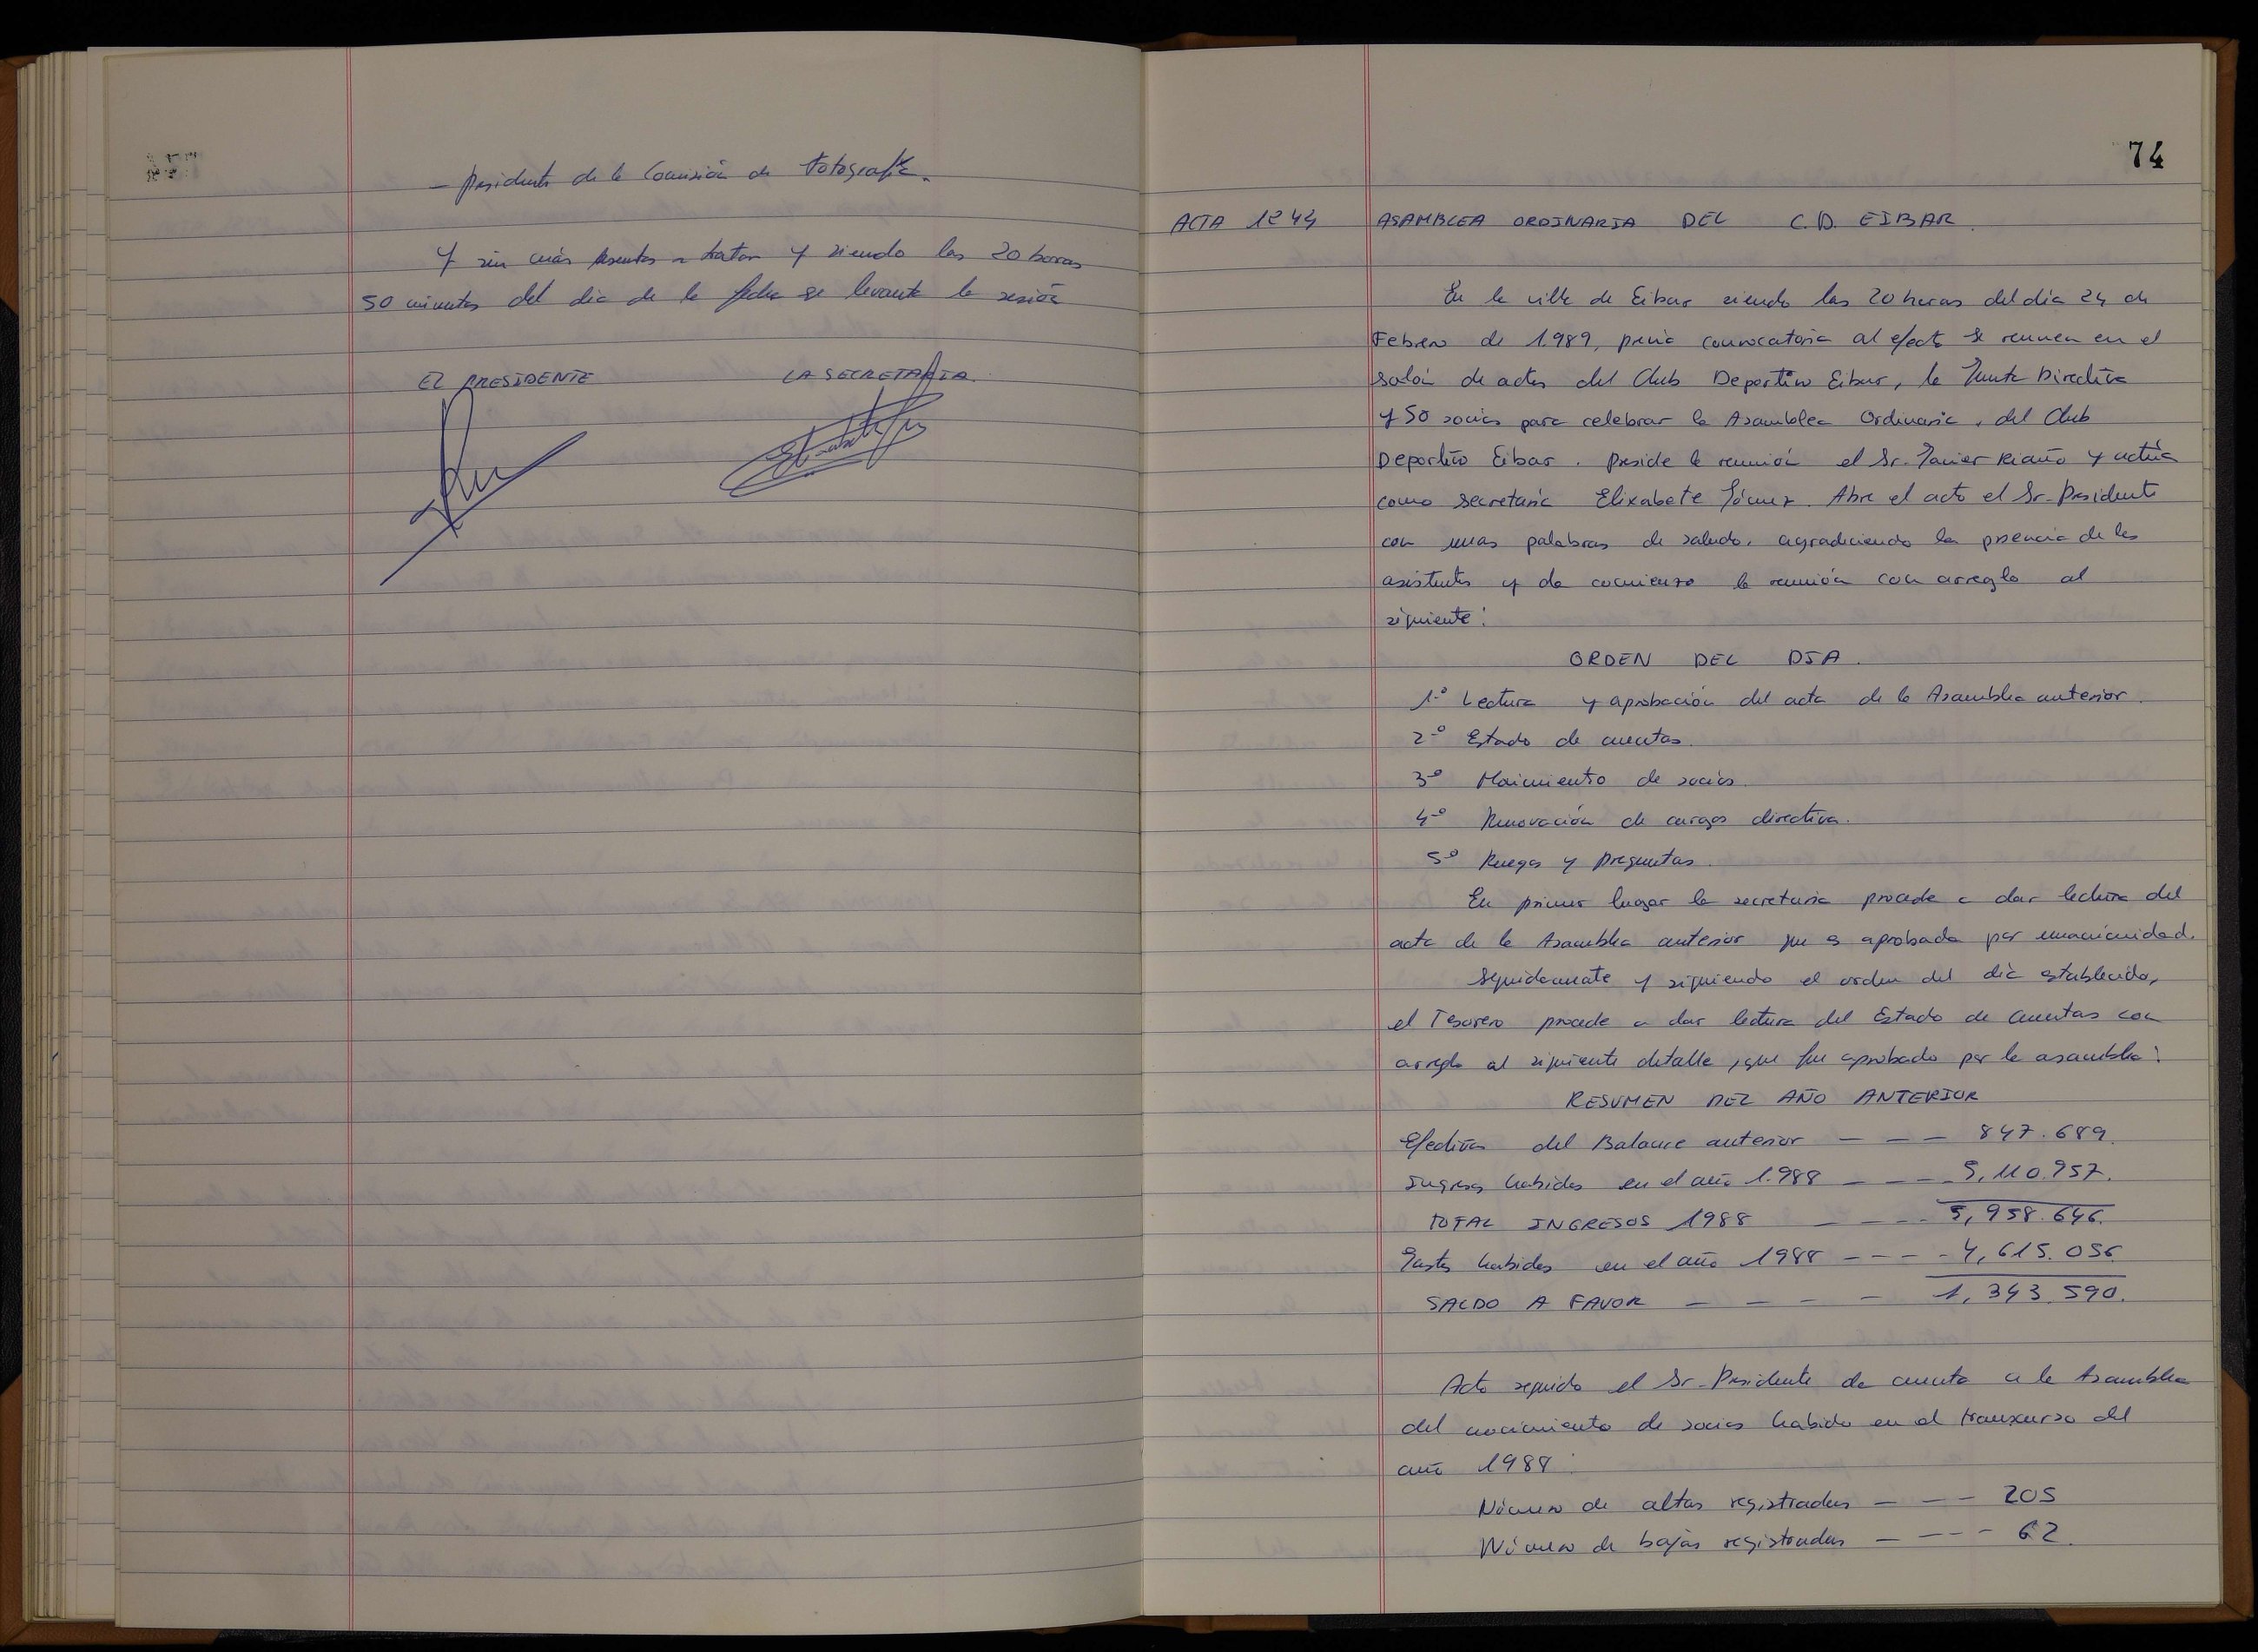 - presidente de la Comisión de Fotografía.
Y sin más asuntos a tratar y siendo las 20 horas
50 minutos del dia de la fecha se levanta la sesión
EL PRESIDENTE LA SECRETARIA.
74
ACTA 1244 ASAMBLEA ORDINARIA DEL C.D. EIBAR.
En la villa de Eibar siendo las 20 horas del día 24 de
Febrero de 1.989, previa convocatoria al efecto se reunen en el
salón de actos del Club Deportivo Eibar, la Junta Directiva
y 50 socios para celebrar la Asamblea Ordinaria, del Club
Deportivo Eibar. Preside la reunión el Sr. Javier Riaño y actúa
como secretaria Elixabete Gómez. Abre el acto el Sr. Presidente
con unas palabras de saludo, agradiciendo la presencia de los
asistentes y da comienzo la reunión con arreglo al
siguiente:
ORDEN DEL DIA.
1.º Lectura y aprobación del acta de la Asamblea anterior.
2.º Estado de cuentas.
3.º Movimiento de socios.
4.º Renovación de cargos directiva.
5º Ruegos y preguntas.
En primer lugar la secretaria procede a dar lectura del
acta de la Asamblea anterior que es aprobada por unanimidad.
Seguidamente y siguiendo el orden del día establecido,
el Tesorero procede a dar lectura del Estado de Cuentas con
arreglo al siguiente detalle, que fue aprobado por la asamblea:
RESUMEN DEL AÑO ANTERIOR
Efectivo del Balance anterior - - - 847.689.
Ingresos habidos en el año 1.988 - - - - 5,110.957.
TOTAL INGRESOS 1988 - - - - 5,958.646.
Gastos habidos en el año 1988 - - - - 4,615.056.
SALDO A FAVOR - - - - 1,343.590.
Acto seguido el Sr. Presidente da cuenta a la Asamblea
del movimiento de socios habido en el transcurso del
año 1988:
Número de altas registradas - - - 205
Número de bajas registradas - - - - 62.